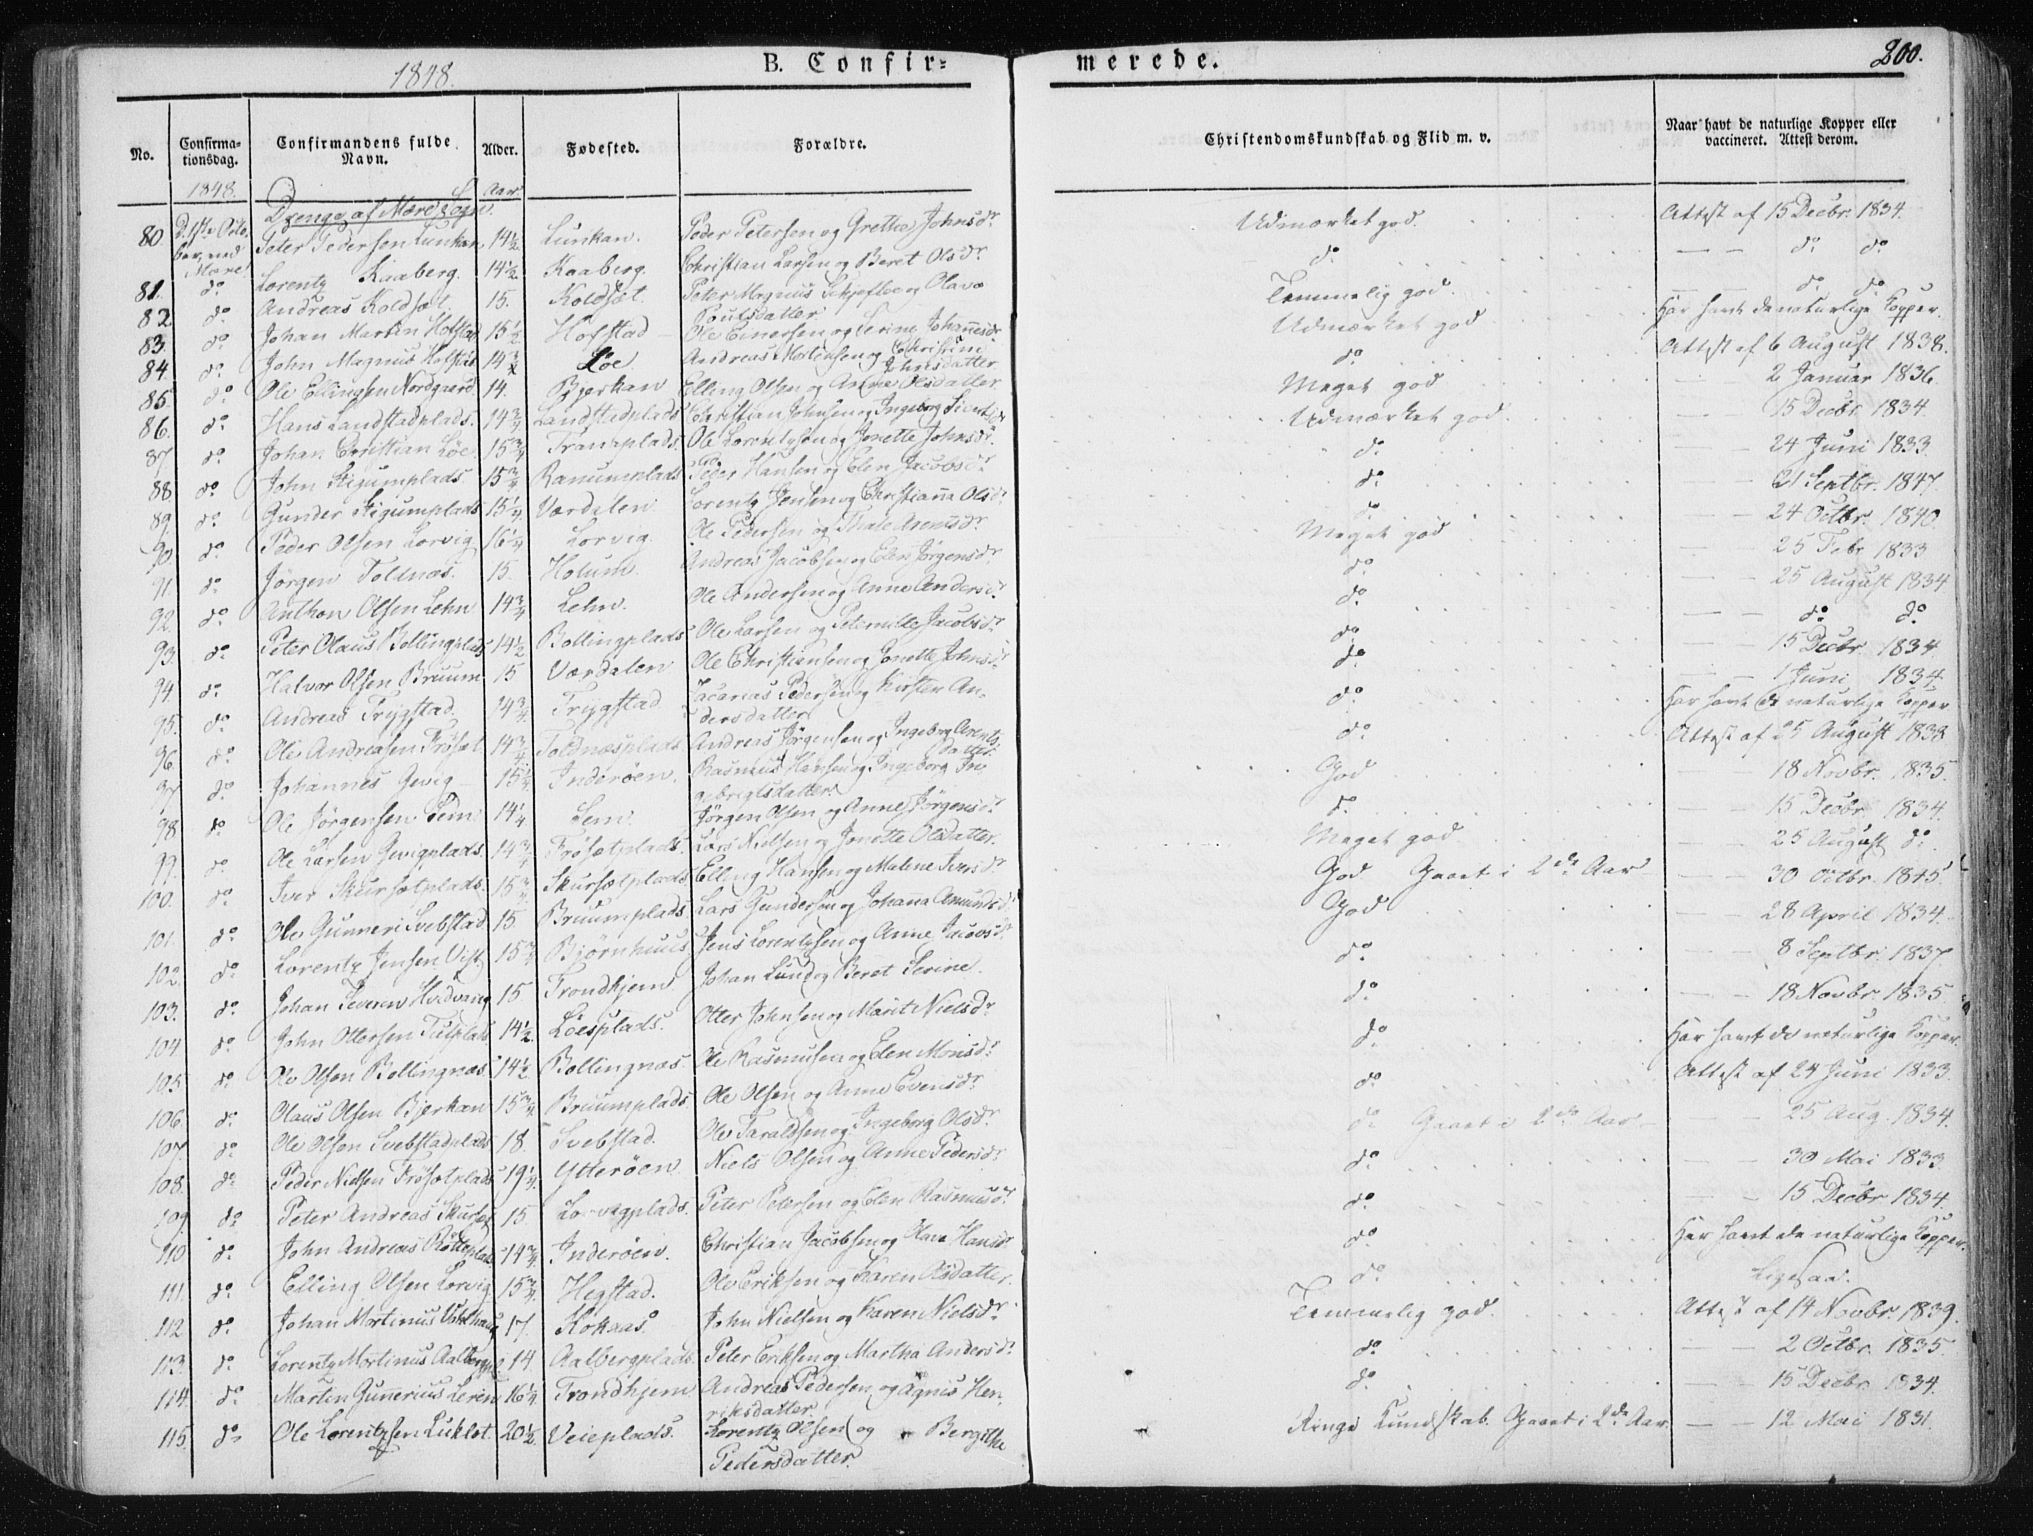 1848.
B. Confir=
merede.
200.
No. Confirma-tionsdag. Confirmandens fulde Navn. Alder. Fødested. Forældre. Christendomskundskab og Flid m. v. Naar havt de naturlige Kopper eller vaccineret. Attest derom.
1848. Drenge af Mære Sogn. Aar
80 D. 1ste Octo-ber, ved Mære Peter Pedersen Lunkan 14½ Lunkan. Peder Petersen og Grethe Johnsdr Udmærket god. Attest af 15 Decbr. 1834.
81. do Lorentz Kaaberg. 14½ Kaaberg. Christian Larsen og Beret Olsdr do — — do do
82 do Andreas Koldsæt. 15. Koldsæt. Peter Magnus og Olava Poulsdatter Temmelig god. do do
83. do Johan Martin Hofstad 15½ Hofstad Ole Einersen og Serine Johannesdr Udmærket god Har havt de naturlige Kopper.
84. do John Magnus 14¾ Løe Andreas Mortensen og Christine Johnsdatter do Attest af 6 August 1838.
85. do Ole Ellingsen Nordgaard 14. Bjerkan Elling Olsen og Anne Olsdatter Meget god 2 Januar 1836.
86. do Hans Landstadplads. 14¾ Landstadplads Christian Johnsen og Ingeborg Udmærket god 15 Decbr. 1834.
87 do Johan Christian Løe 15¾ Tranaplads. Ole Lorentzsen og Jonette Johnsdr. do 24 Juni 1833.
88 do John Stigumplads 15¾ Ranumplads Peder Hansen og Elen Jacobsdr do 21 Septbr. 1847.
89. do Gunder Stigumplads 15¼ Værdalen Lorentz Jensen og Christianna Olsdr do 24 Octbr. 1840.
90. do Peder Olsen Lorvig 16¼ Lorvig. Ole Pedersen og Thale Arentsdr Meget god 25 Febr 1833
91. do Jørgen Toldnæs. 15 Holum Andreas Jacobsen og Elen Jørgensdr do 25 August 1834
92. do Anthon Olsen Lehn 14¾ Lehn. Ole Andersen og Anne Andersdr do — — do do
93. do Peter Olaus Bollingplads 14½ Bollingplads Ole Larsen og Peternille Jacobsdr do 15 Decbr. 1834
94. do Halvor Olsen Bruum 15 Værdalen Ole Christiansen og Jonette Johnsdr do — — 1 Juni 1834.
95. do Andreas Trygstad. 14¾ Trygstad Zacarias Pedersen og Kirsten An-dersdatter do Har havt de naturlige Kopper
96. do Ole Andreasen Frøsæt 14¾ Toldnæsplads Andreas Jørgensen og Ingeborg Arents-datter. do Attest af 25 August 1833
97 do Johannes Gevig 15½ Inderøen. Rasmus Hansen og Ingeborg In-gebrigtsdatter. God — — 18 Novbr. 1835.
98 do Ole Jørgensen Lem 14¼ Lem. Jørgen Olsen og Anne Jørgensdr do — — 15 Decbr. 1834.
99. do Ole Larsen Gevigplads. 14¾ Frøsætplads. Lars Nielsen og Jonette Olsdatter. Meget god — — 25 August do.
100. do Iver Skursætplads. 15¾ Skursætplads Elling Hansen og Malene Iversdr God Gaaet i 2de Aar — — 30 Octbr. 1845.
101. do Ole Gunneri Svebstad 15 Bruumplads. Lars Gundersen og Johana Amundsdr God — — 28 April 1834.
102. do Lorentz Jensen Vist. 15¾ Bjørnhuus Jens Lorentzsen og Anne Jacobsdr do — — 8 Septbr. 1837.
103. do Johan Severin Hvidvaag 15 Trondhjem Johan Lund og Beret Serine. do — — 18 Novbr. 1835.
104. do John Ottersen 14½ Løesplads. Otter Johnsen og Marit Nielsdr do Har havt de naturlige Kopper.
105 do Ole Olsen Bollingnæs. 14½ Bollingnæs. Ole Rasmusen og Elen Monsdr do Attest af 24 Juni 1833.
106. do Olaus Olsen Bjerkan 15¾ Bruumplads. Ole Olsen og Anne Evensdr do Gaaet i 2de Aar — — 25 Aug. 1834.
107. do Ole Olsen Svebstadplads 18 Svebstad. Ole Taraldsen og Ingeborg Olsdr. do — — 30 Mai 1833.
108. do Peder Nielsen Frøsætplads 19¼ Ytterøen Niels Olsen og Anne Pedersdr do — — 15 Decbr 1834.
109. do Peter Andreas Skursæt 15 Lorvigplads. Peter Petersen og Elen Rasmusdr do Har havt de naturlige Kopper.
110 do John Andreas 14¾ Inderøen. Christian Jacobsen og Olava Hansdr do Ligesaa.
111. do Elling Olsen Lorvig 15¾ Hegstad. Ole Eriksen og Karen Olsdatter. Temmelig god. Attest af 14 Novbr. 1839.
112 do Johan Martinus 17. Kokaas. John Nielsen og Karen Nielsdr do — — 2 Octbr. 1835.
113. do Lorentz Martinus Aalbergpl 14 Aalbergplads. Peter Eriksen og Martha Andersdr do — — 15 Decbr. 1834.
114. do Martin Gunerius Leren 16½ Trondhjem Andreas Pedersen og Agnis Hen-riksdatter Ringe Kundskab. Gaaet i 2de Aar — — 12 Mai 1831.
115. do Ole Lorentzsen 20½ Veieplads. Lorentz Olsen og Bergithe Pedersdatter.